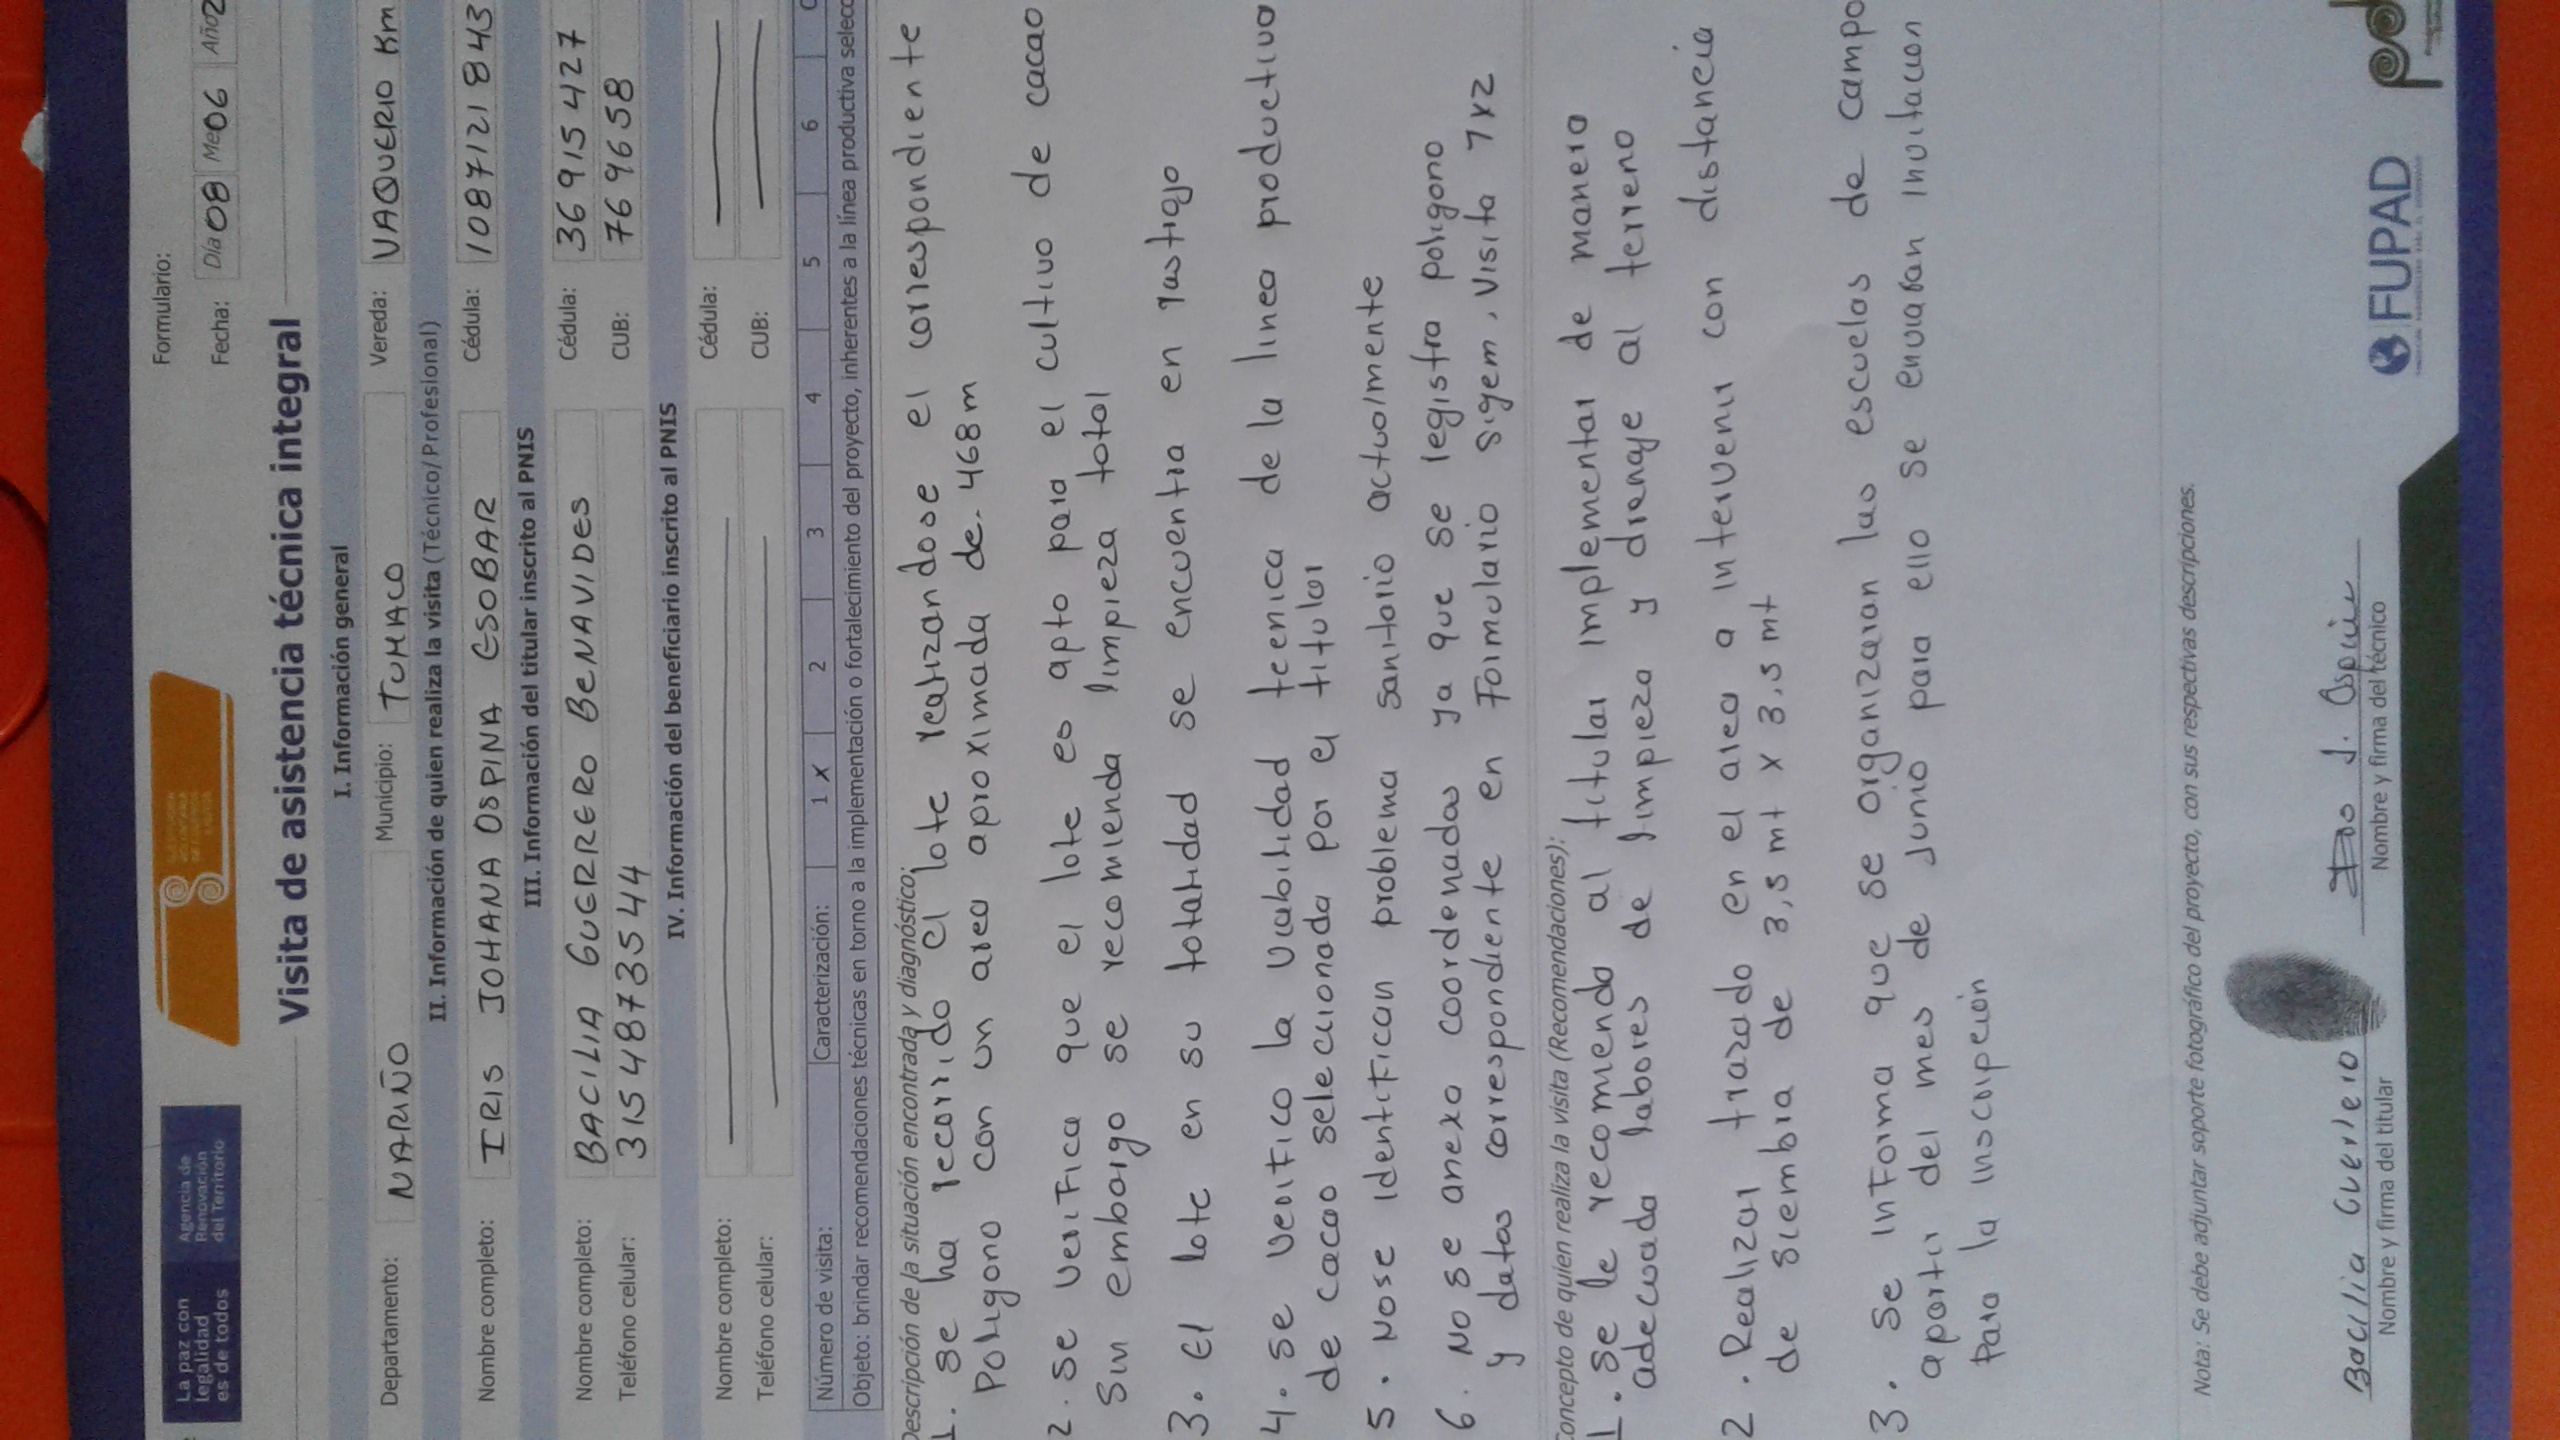 La paz con
legalidad
es de todos
Agencia de
Renovación
del Territorio
Formulario:
Fecha: Día 08 Me 06 Año 2
Visita de asistencia técnica integral
I. Información general
Departamento: NARIÑO Municipio: TUMACO Vereda: VAQUERIO Km
II. Información de quien realiza la visita (Técnico/Profesional)
Nombre completo: IRIS JOHANA OSPINA ESOBAR Cédula: 1087121843
III. Información del titular inscrito al PNIS
Nombre completo: BACILIA GUERRERO BENAVIDES Cédula: 36915427
Teléfono celular: 3154873544 CUB: 769658
IV. Información del beneficiario inscrito al PNIS
Nombre completo: Cédula:
Teléfono celular: CUB:
Número de visita: Caracterización: 1 X 2 3 4 5 6
Objeto: brindar recomendaciones técnicas en torno a la implementación o fortalecimiento del proyecto, inherentes a la línea productiva selecc
Descripción de la situación encontrada y diagnóstico:
1. se ha recorrido el lote realizandose el correspondiente
Poligono con un area aproximada de. 468m
2. se verifica que el lote es apto para el cultivo de cacao
Sin embargo se recomienda limpieza total
3. El lote en su totalidad se encuentra en rastrojo
4. se verifico la viabilidad tecnica de la linea productiva
de cacao seleccionada por el titular
5. Nose identifican problema sanitario actualmente
6. No se anexa coordenadas ya que se registra poligono
y datos correspondiente en Formulario sigem, visita 1x2
Concepto de quien realiza la visita (Recomendaciones):
1. se le recomienda al titular implementar de manera
adecuada labores de limpieza y drenaje al terreno
2. Realizar trazado en el area a intervenir con distancia
de siembra de 3,5 mt x 3,5 mt
3. Se informa que se organizaran las escuelas de campo
apartir del mes de Junio para ello se enviaran invitacion
Para la inscripción
Nota: Se debe adjuntar soporte fotográfico del proyecto, con sus respectivas descripciones.
Bacilia Guerrero
J. Ospina
Nombre y firma del titular
Nombre y firma del técnico
FUPAD